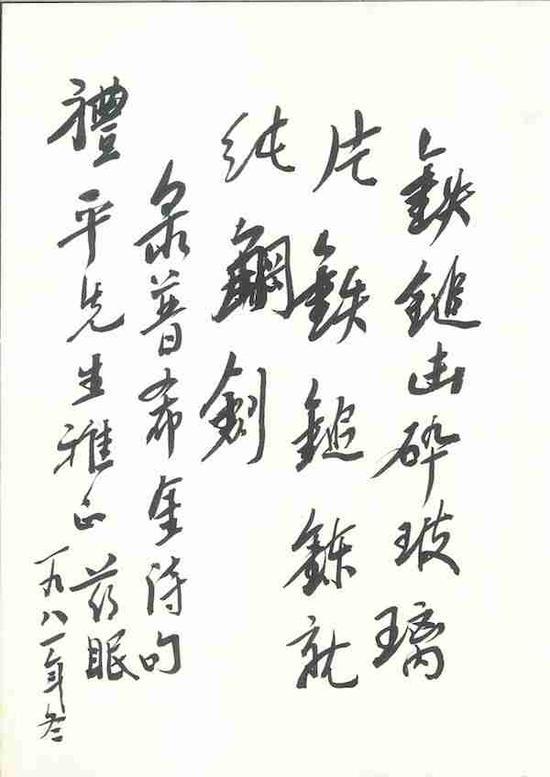 鉄鎚击碎玻璃
片鉄鎚鍊就
纯鋼劍
录普希金诗句
禮平先生雅正 药眠
一九八一年冬